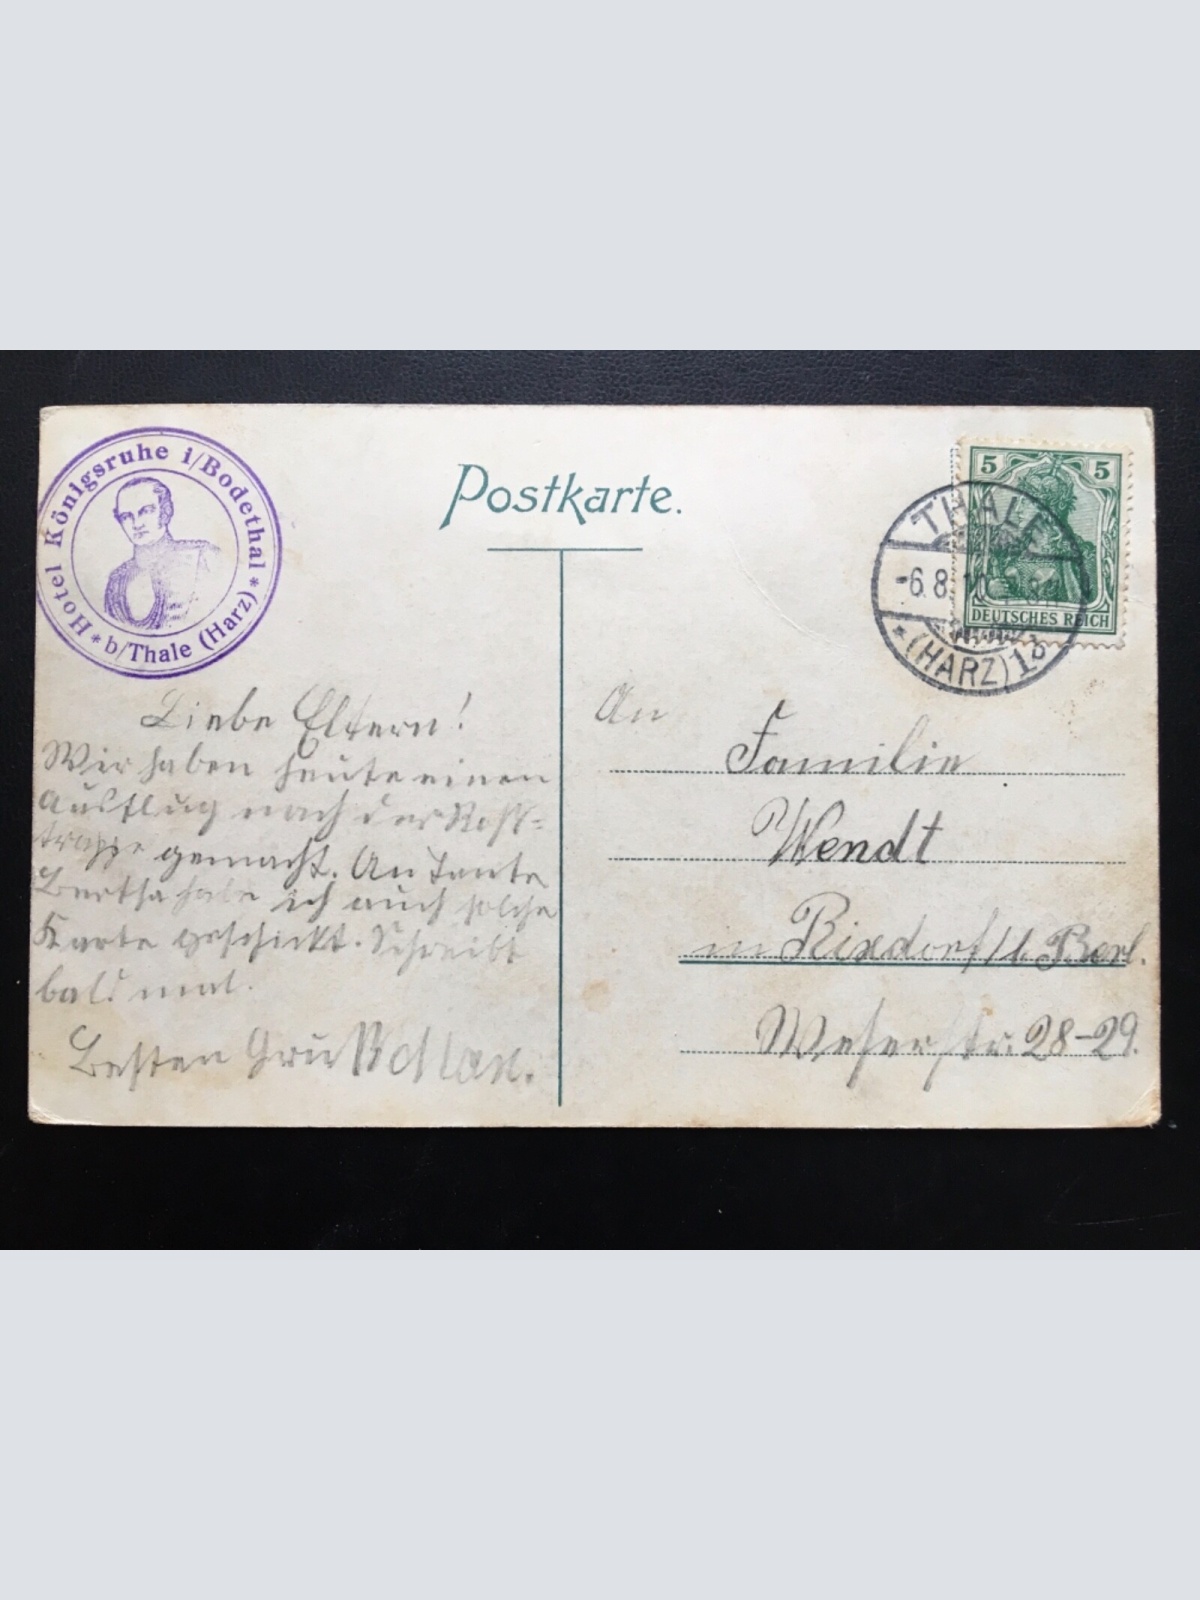 Hotel Königsruhe i/Bodethal * b/Thale (Harz) *
Postkarte.
5 5
DEUTSCHES REICH
THALE
-6.8.10
*(HARZ)1b
Liebe Eltern!
Wir haben heute einen
Ausflug nach der Roß-
trappe gemacht. An Tante
Bertha habe ich auch solche
Karte geschickt. Schreibt
bald mal.
Besten Gruß
An
Familie
Wendt
in Rixdorf b. Berl.
Weserstr. 28-29.